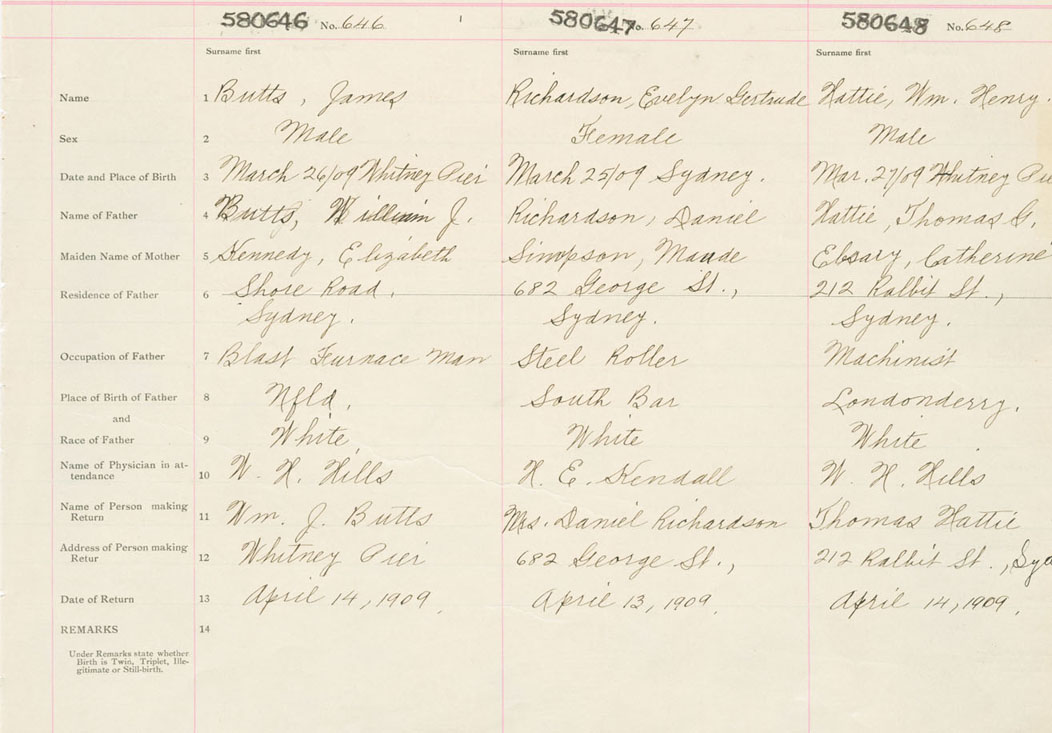 580646 No. 646 580647 No. 647 580648 No. 648
Surname first Surname first Surname first
Name 1 Butts, James Richardson, Evelyn Gertrude Hattie, Wm. Henry.
Sex 2 Male Female Male
Date and Place of Birth 3 March 26/09 Whitney Pier March 25/09 Sydney. Mar. 27/09 Whitney Pie
Name of Father 4 Butts, William J. Richardson, Daniel Hattie, Thomas G.
Maiden Name of Mother 5 Kennedy, Elizabeth Simpson, Maude Ebsary, Catherine
Residence of Father 6 Shore Road. 682 George St., 212 Ralbit St.,
Sydney. Sydney. Sydney.
Occupation of Father 7 Blast Furnace Man Steel Roller Machinist
Place of Birth of Father 8 Nfld. South Bar Londonderry.
and
Race of Father 9 White White White
Name of Physician in at-
tendance 10 W. H. Hills H. E. Kendall W. H. Hills
Name of Person making
Return 11 Wm. J. Butts Mrs. Daniel Richardson Thomas Hattie
Address of Person making
Retur 12 Whitney Pier 682 George St., 212 Ralbit St., Syd
Date of Return 13 April 14, 1909. April 13, 1909. April 14, 1909.
REMARKS 14
Under Remarks state whether
Birth is Twin, Triplet, Ille-
gitimate or Still-birth.